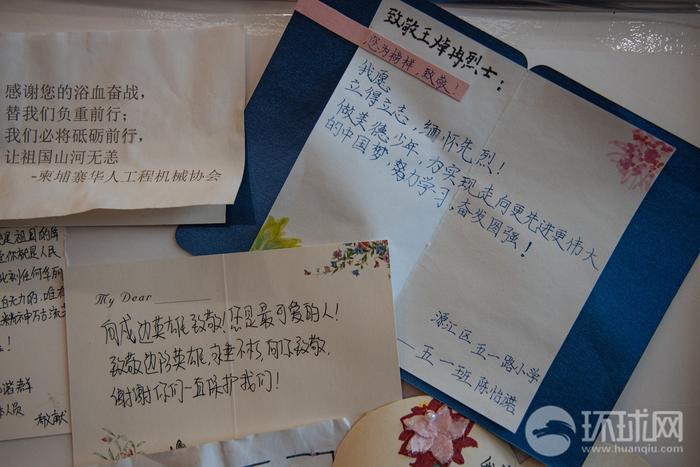 感谢您的浴血奋战，
替我们负重前行；
我们必将砥砺前行，
让祖国山河无恙
-柬埔寨华人工程机械协会
致敬王焯冉烈士：
您为榜样，致敬！
我愿
立得立志，缅怀先烈！
做美德少年，为实现走向更先进更伟大
的中国梦 努力学习 奋发图强！
源汇区 五一路小学
——五一班 陈怡诺
My Dear
向戍边英雄致敬！您是最可爱的人！
致敬边防英雄，永垂不朽，向你致敬，
谢谢你们一直保护我们！
敬献
环球网
www.huanqiu.com